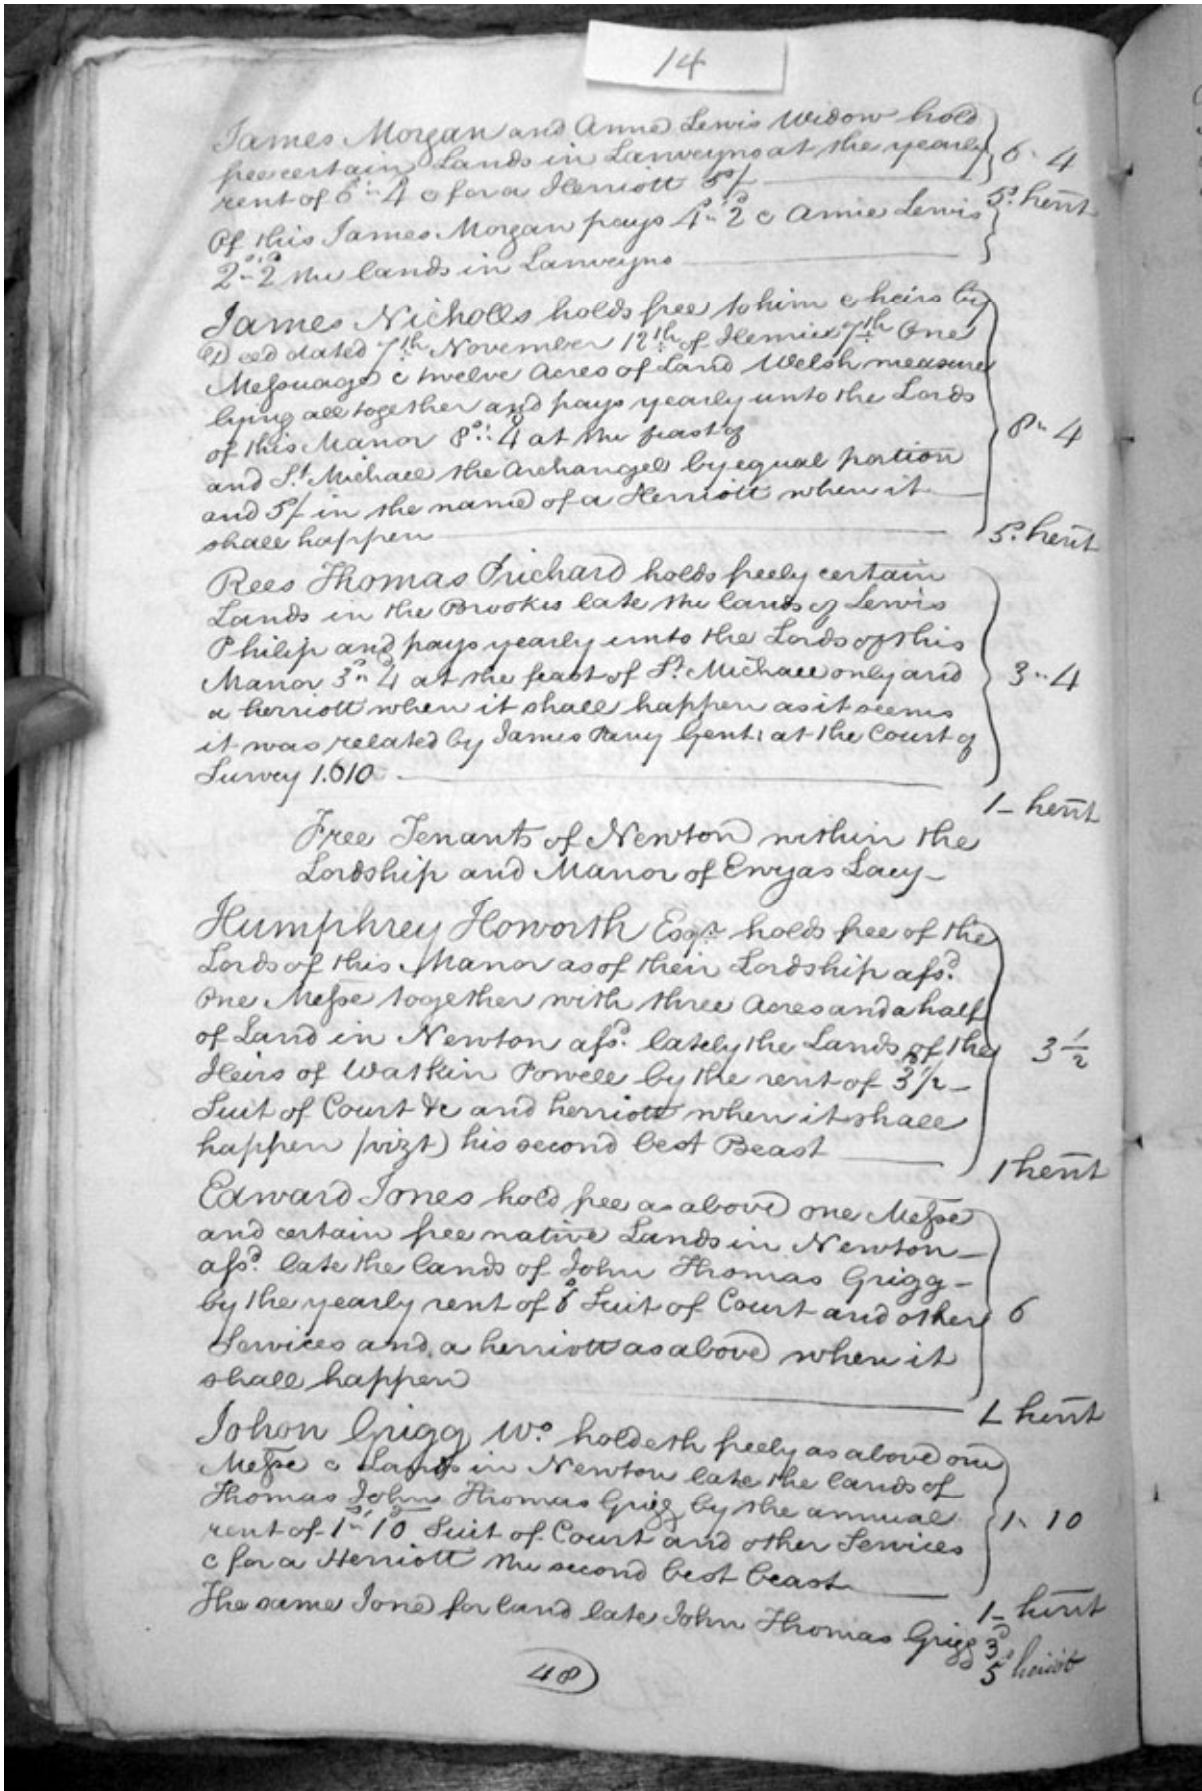 14
James Morgan and Anne Lewis Widow hold
free certain Lands in Lanveyno at the yearly 6 " 4
rent of 6s " 4d & for a Herriott 5s/ 5s. heriot
Of this James Morgan pays 4s " 2d & Anne Lewis
2s " 2d the lands in Lanveyno
James Nicholls holds free to him & heirs by
Deed dated 7th November 12th of Henrie 7th One
Messuage & twelve Acres of Land Welsh measure
lying all together and pays yearly unto the Lords
of this Manor 8s " 4d at the feast of 8 " 4
and St. Michael the Archangel by equal portion
and 5/ in the name of a Herriott when it
shall happen 5s. herīt
Rees Thomas Prichard holds freely certain
Lands in the Brookes late the lands of Lewis
Philip and pays yearly unto the Lords of this
Manor 3s " 4d at the feast of St. Michael only and 3 " 4
a herriott when it shall happen as it seems
it was related by James Parry Gent: at the Court of
Survey 1.610.
1 - herīt
Free Tenants of Newton within the
Lordship and Manor of Ewyas Lacy -
Humphrey Howorth Esqr. holds free of the
Lords of this Manor as of their Lordship afsd.
One Messe together with three Acres and a half
of Land in Newton afsd. lately the Lands of the 3 1/2
Heirs of Watkin Powell by the rent of 3d 1/2 -
Suit of Court &c and herriott when it shall
happen /vizt) his second best Beast
1 herīt
Edward Jones hold free as above one Messe
and certain free native Lands in Newton -
afsd. late the lands of John Thomas Grigg -
by the yearly rent of 6d Suit of Court and other 6
Services and a herriott as above when it
shall happen
1 herīt
Johon Grigg Wo. holdeth freely as above one
Messe & Lands in Newton late the lands of
Thomas John Thomas Grigg by the annual
rent of 1s " 10d Suit of Court and other Services 1 " 10
& for a Herriott the second best beast
1 - herīt
The same Jone for land late John Thomas Grigg 3d
5s heriot
48